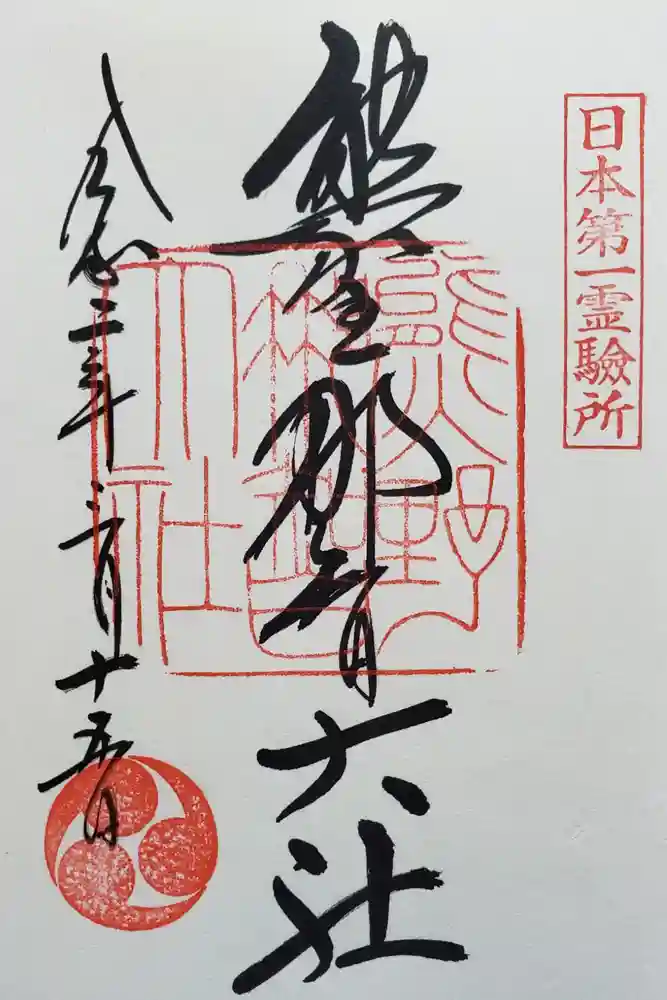 日本第一霊驗所
熊野那智大社
熊野
那智
大社
令和 年 月十五日